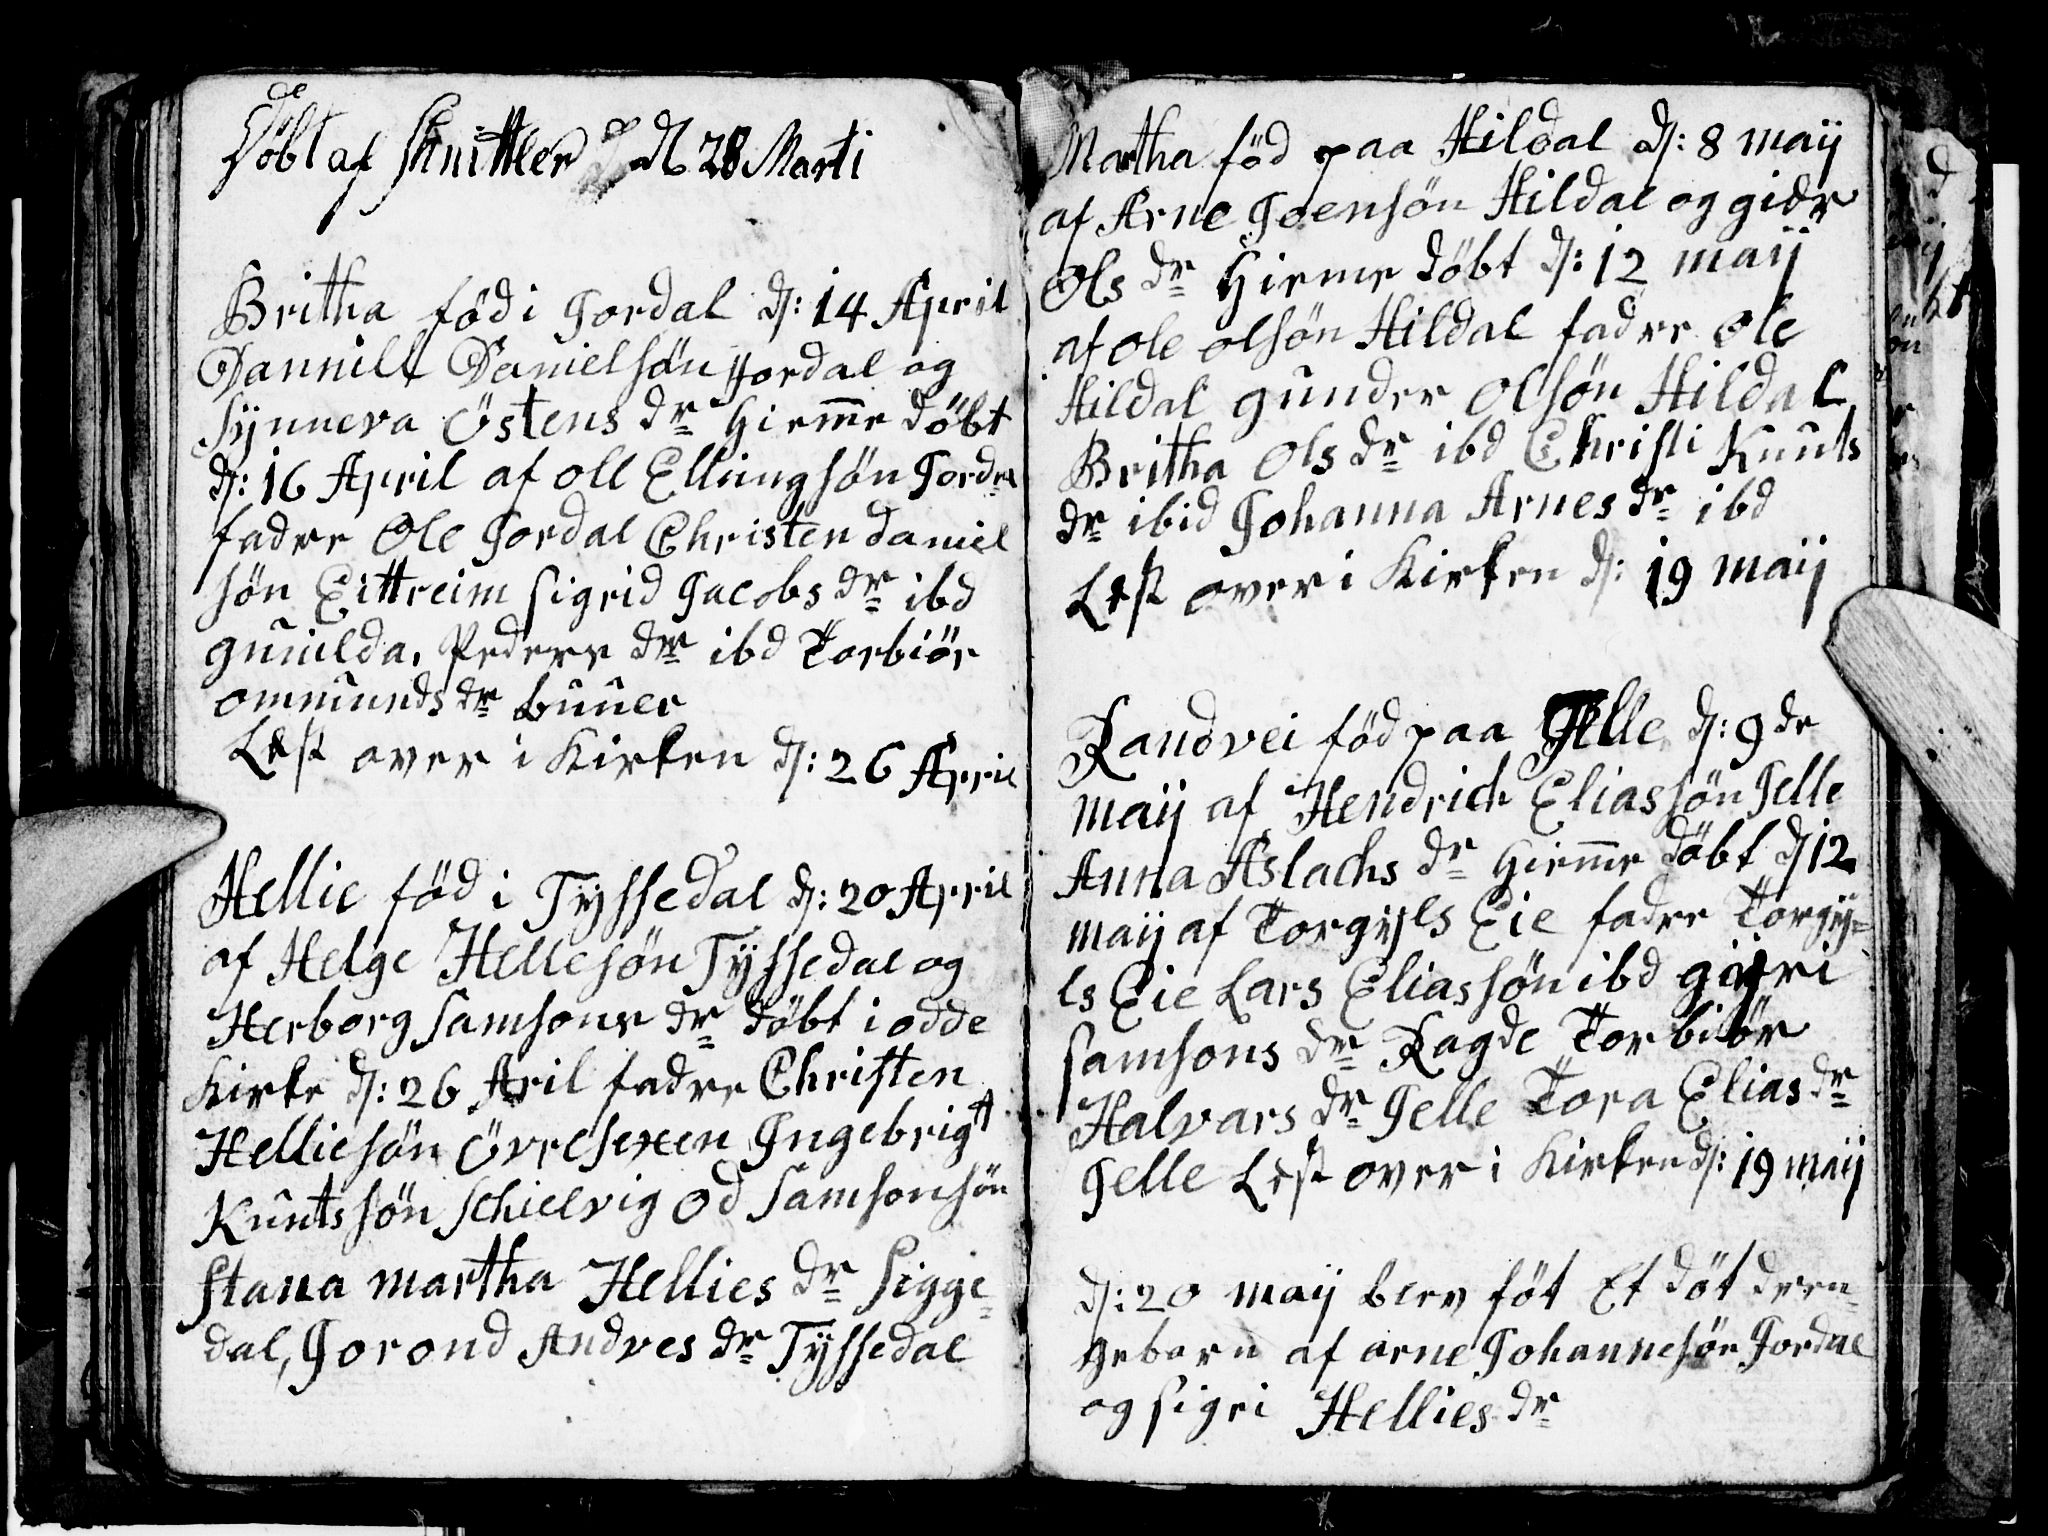 döbt af Schnittler d 28 Marti
Britha föd i Jordal d: 14 April
Dannill Danielsön Hordal og
Sÿnneva Östens dr hiemme döbt
d: 16 April af oll Ellingsön Jordal
fadre Ole Jordal Christen daniel
sön Eittreim Sigrid Jacobs dr ibd
gunilda, Peders dr ibd Torbiör
ommunds dr buuer
Lest over i Kirken d: 26 April
Hellie föd i Tÿssedal d: 20 April
af Helge Hellesön Tÿssedal og
Herborg Samsons dr döbt i odde
Kirke d: 26 Aril fadre Christen
Helliesön Övresexen Ingebrigt
Kuntssön Schielvig Od Samsonsön
Stana martha Hellies dr Sigge=
dal, Jorond Andves dr Tÿssedal
Martha föd paa Hildal d: 8 maij
af Arne Joensön Hildal og gidr
Ols dr hieme döbt d: 12 maij
af ole olsön Hildal fadre ole
Hildal gunder olsön Hildal
Britha Ols dr ibd Christi Kunts
dr ibid Johanna Arnes dr ibd
Lest over i Kirken d: 19 maij
Randvei föd paa Jelle d: 9 de
maij af Hendrich Eliassön Jelle
Anna Aslachs dr hiemme döbt d 12
maij af Torgijls Eie fadre Torgij=
ls Eie Lars Eliassön ibd gijri
samsons dr Ragde Torbiör
Halvars dr Jelle Tora Elias dr
Jelle Lest over i Kirken d: 19 maij
d: 20 maij blev föt Et döt dren=
gebarn af arne Johannesön Jordal
og sigri Hellies dr